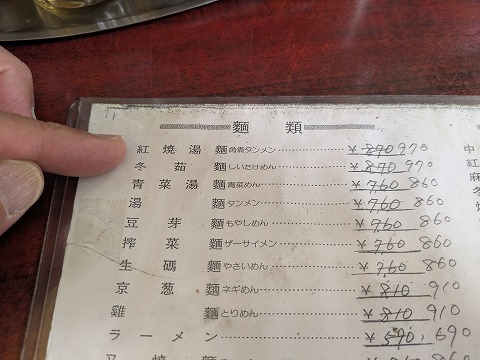 麵類
紅焼湯麵 角煮タンメン ¥870 970
冬茹麵 しいたけめん ¥870 970
青菜湯麵 青菜めん ¥760 860
湯麵 タンメン ¥760 860
豆芽麵 もやしめん ¥760 860
搾菜麵 ザーサイメン ¥760 860
生碼麵 やさいめん ¥760 860
京葱麵 ネギめん ¥810 910
雞麵 とりめん ¥810 910
ラーメン ¥590 690
中
紅
麻
冬